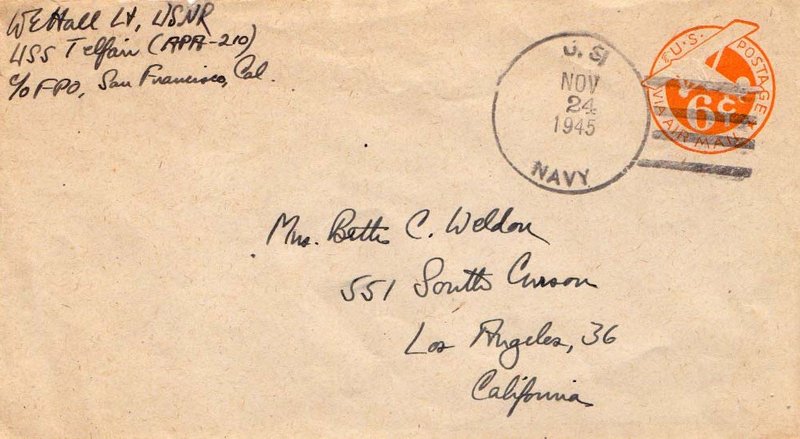 WEHall Lt, USNR
USS Telfair (APA-210)
c/o FPO, San Francisco, Cal.
U.S.
NOV
24
1945
NAVY
U.S. POSTAGE
6c
VIA AIR MAIL
Mrs. Bette C. Weldon
551 South Curson
Los Angeles, 36
California